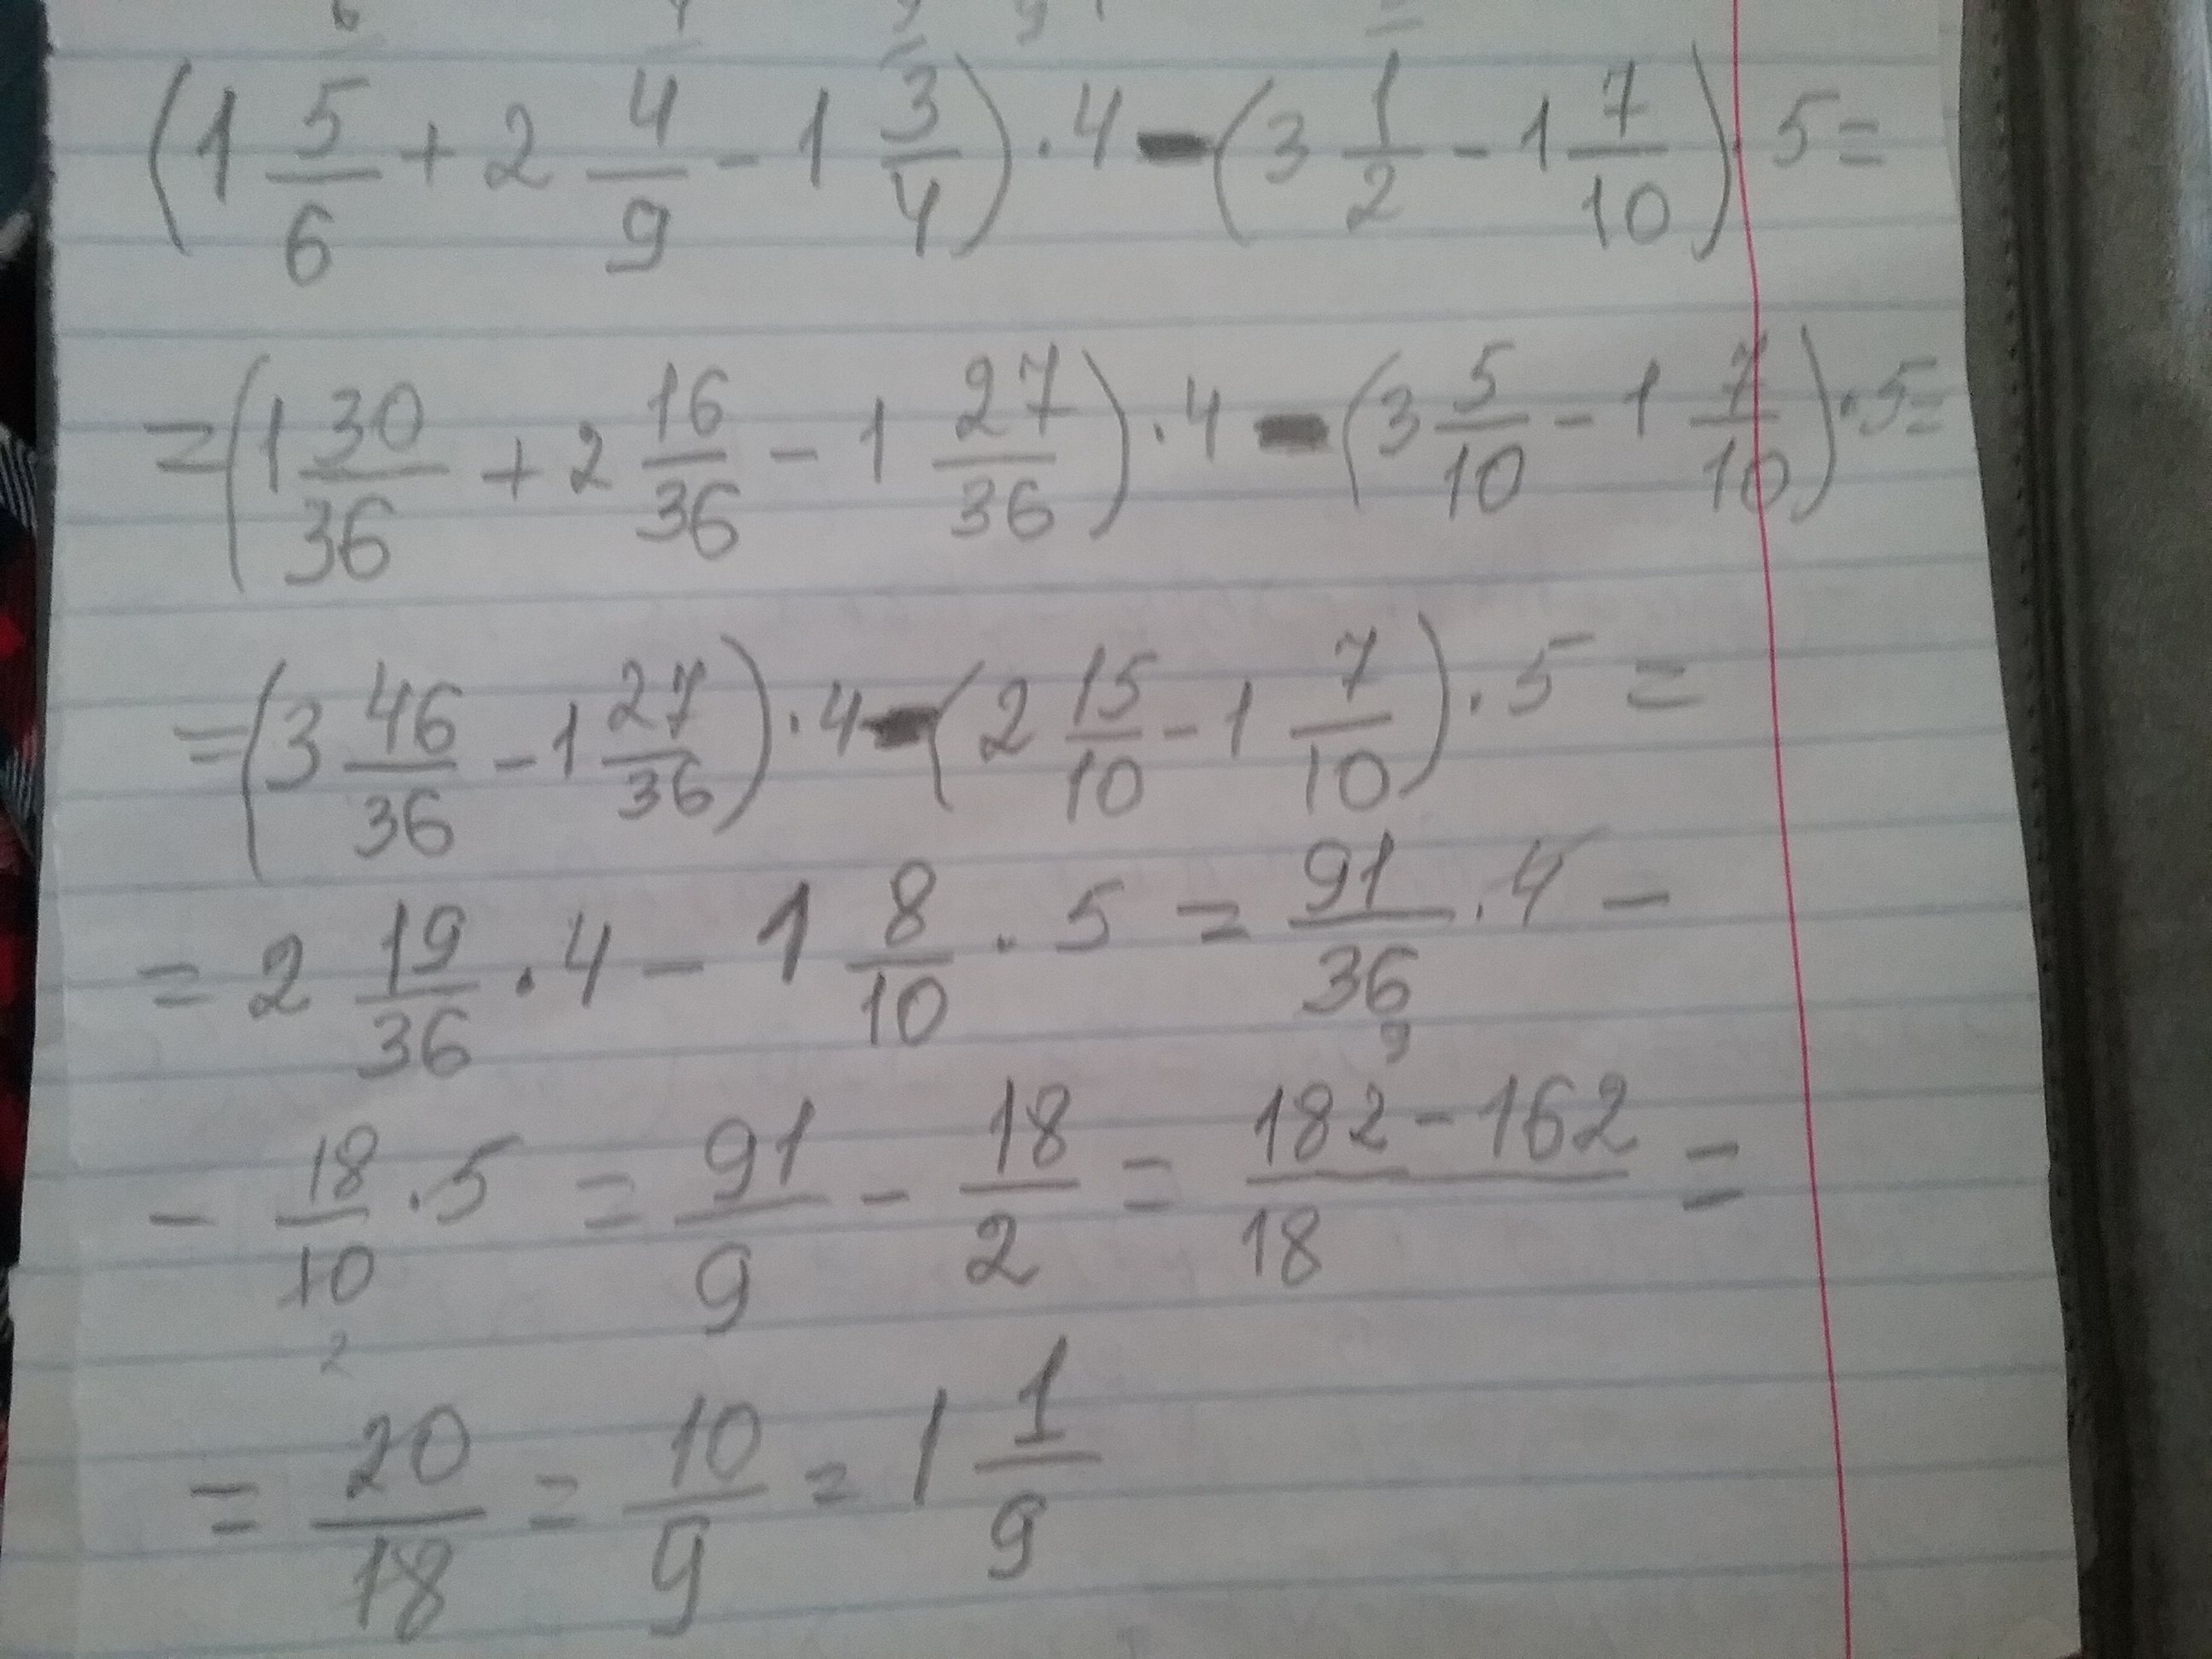 (1 5/6 + 2 4/9 - 1 3/4) · 4 - (3 1/2 - 1 7/10) · 5 =
= (1 30/36 + 2 16/36 - 1 27/36) · 4 - (3 5/10 - 1 7/10) · 5 =
= (3 46/36 - 1 27/36) · 4 - (2 15/10 - 1 7/10) · 5 =
= 2 19/36 · 4 - 1 8/10 · 5 = 91/36 · 4 -
9
- 18/10 · 5 = 91/9 - 18/2 = 182 - 162/18 =
2
= 20/18 = 10/9 = 1 1/9